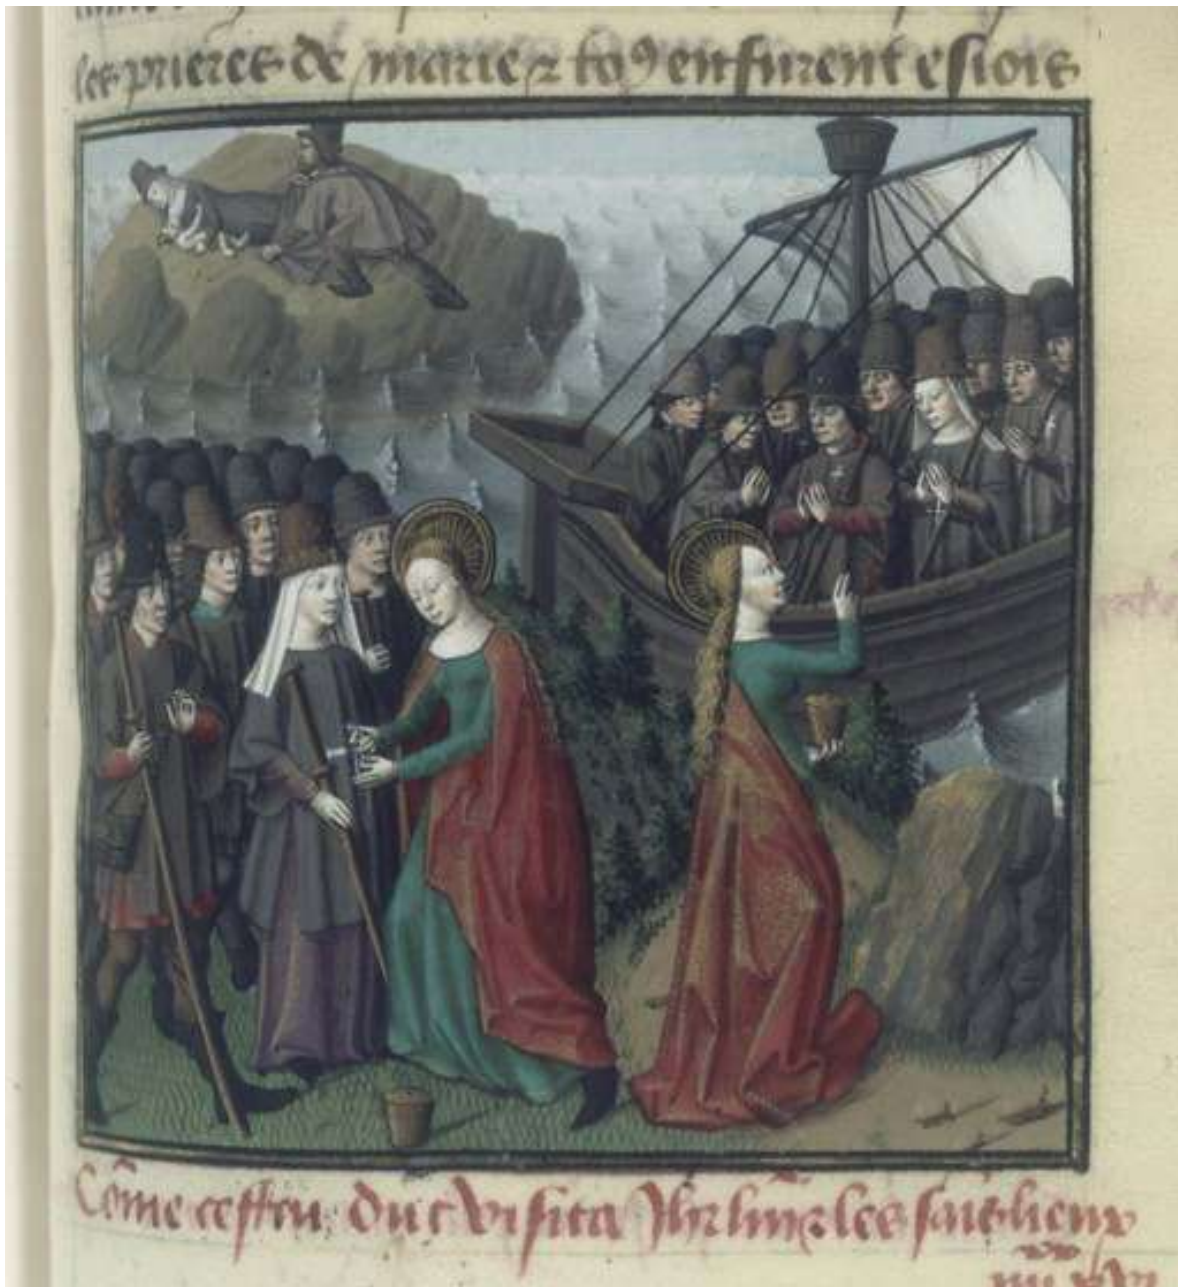 les prieres de marie ⁊ toꝯ en furent esiois
Cõme ce duc visita Jhrlm̃ ⁊ les saĩs lieux